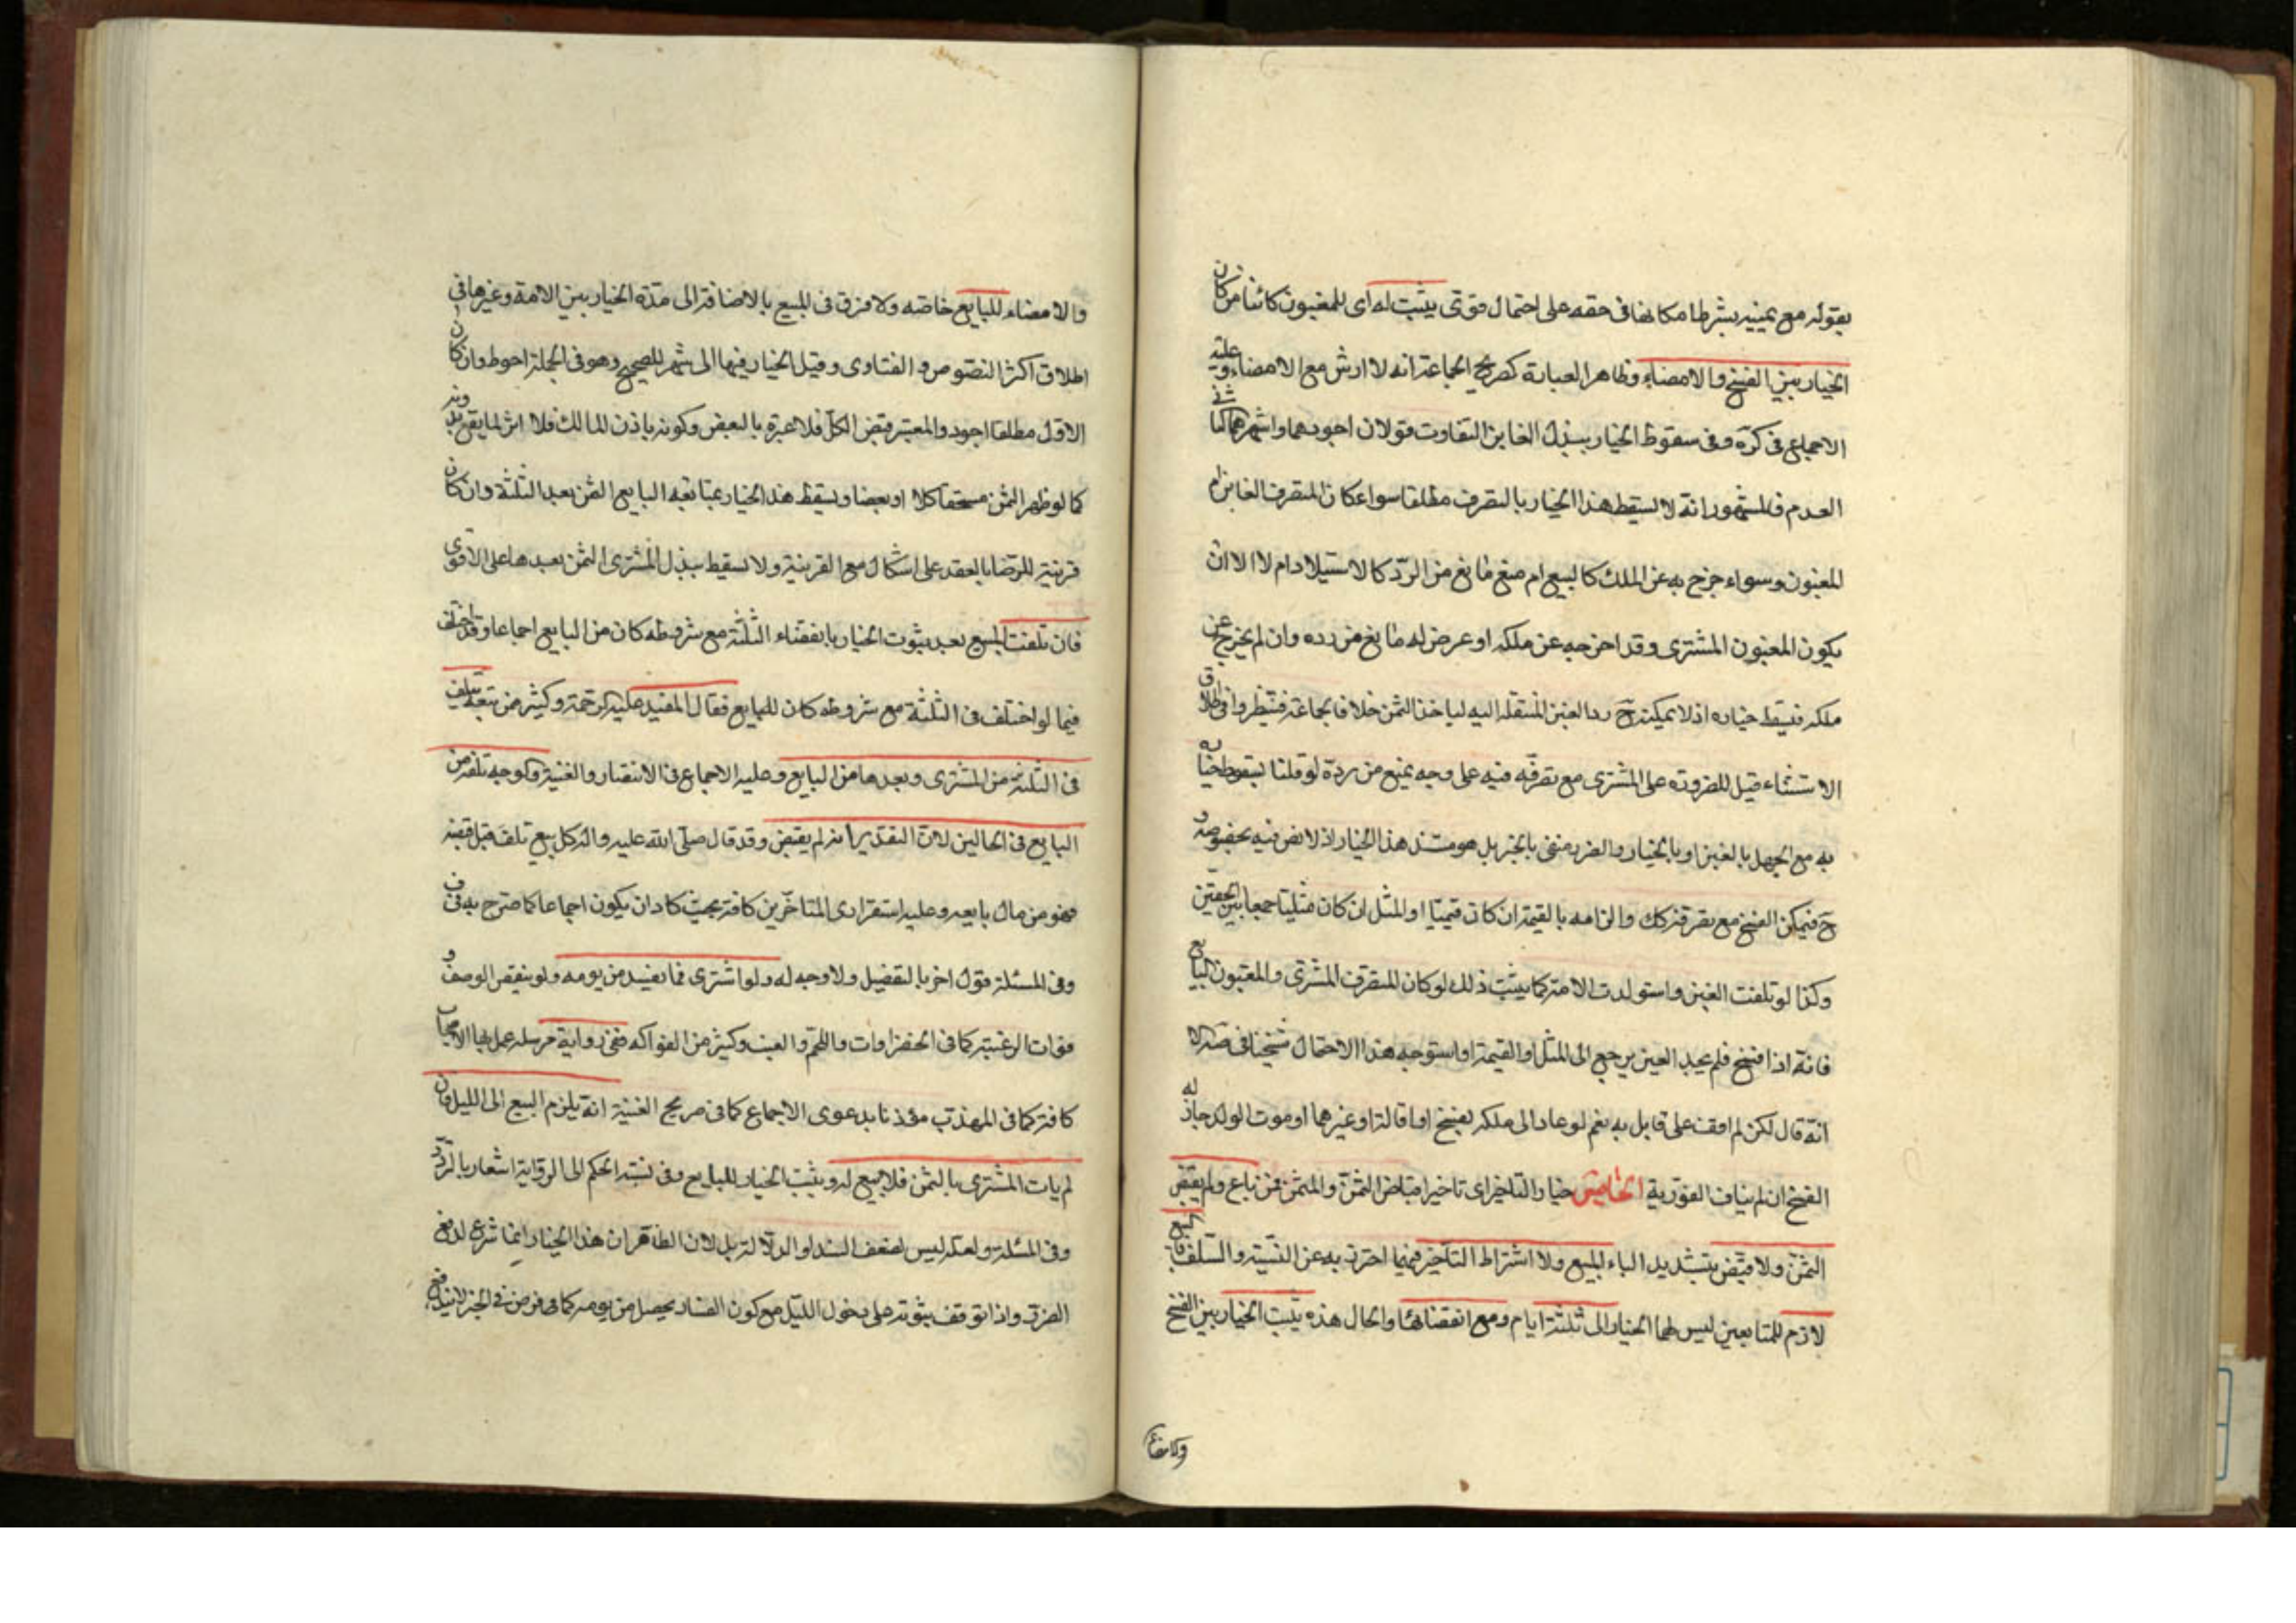 بقوله مع يمينه بشرط امكانها فى حقه على احتمال قوتى يثبت له اى للمغبون كائنا من كان
الخيار بين الفسخ والامضاء وظاهر العبارة كصريح الجماعة انه لا ارش مع الامضاء وعليه
الاجماع فى كرة وفى سقوط الخيار ببذل الغابن التفاوت قولان اجودهما واشهرهما كما فى
العدم فالمشهور انه لا يسقط هذا الخيار بالتصرف مطلقا سواء كان المتصرف الغابن ام
المغبون وسواء خرج به عن الملك كالبيع ام منع مانع من الردّ كالاستيلاد ام لا الا ان
يكون المغبون المشترى وقد اخرجه عن ملكه او عرض له مانع من رده وان لم يخرج عن
ملكه فيسقط خياره اذ لا يمكنه ح رد العين المنتقله اليه لياخذ الثمن خلافا لجماعة فنظروا فى اطلاق
الاستثناء قيل للضرورة على المشترى مع تصرفه فيه على وجه يمنع من رده لو قلنا بسقوط خياره
به مع الجهل بالغبن او بالخيار والضرر منفى بالخبر بل هو مستند هذا الخيار اذ لا نص فيه بخصوصه
ح فيمكن الفسخ مع تصرفه كك والزامه بالقيمة ان كان قيميّا او المثل ان كان مثليّا جمعا بين الحقين
وكذا لو تلفت العين واستولدت الامة كما يثبت ذلك لو كان المتصرف المشترى والمغبون البايع
فانه اذا فسخ فلم يجد العين يرجع الى المثل او القيمة واستوجه هذا الاحتمال شيخنا فى ضه الا
انّه قال لكن لم اقف على قايل به نعم لو عاد الى ملكه بفسخ او اقالة او غيرهما او موت الولد جاز له
الفسخ ان لم يناف الفوّرية الخامس خيار التاخير اى تاخير اقباض الثمن والمثمن فمن باع ولم يقبض
الثمن ولا قبّض بتشديد الباء المبيع ولا اشتراط التاخير فيهما احترز به عن النسية والسلف فالبيع
لازم للمتابعين ليس لهما الخيار الى ثلثة ايام ومع انقضائها والحال هذه يثبت الخيار بين الفسخ
والامضاء
والامضاء للبايع خاصّه ولا فرق فى المبيع بالاضافة الى مدّة الخيار بين الامة وغيرها فى
اطلاق اكثر النصوص والفتاوى وقيل الخيار فيها الى شهر للصحيح وهو فى الجملة احوط وان كان
الاوّل مطلقا اجود والمعتبر قبض الكل فلا عبرة بالبعض وكونه باذن المالك فلا اثر لما يقع بدونه
كما لو ظهر الثمن مستحقا كلا او بعضا ويسقط هذا الخيار بمتابعه البايع الثمن بعد الثلثة وان كان
قرينة للرضا بالعقد على اشكال مع القرينة ولا يسقط ببذل المشترى الثمن بعدها على الاقوى
فان تلفت المبيع بعد ثبوت الخيار بانقضاء الثلثة مع شروطه كان من البايع اجماعا وقد اختلف
فيما لو اختلف فى الثلثة مع شروطه كان للبايع فقال المفيد عليه الرحمة وكثير من تبعه يتلف
فى الثلثة من المشترى وبعدها من البايع وعليه الاجماع فى الانتصار والغنية والوجه تلفه من
البايع فى الحالين لان التقدير انه لم يقبض وقد قال صلّى الله عليه واله كل بيع تلف قبل قبضه
فهو من مال بايعه وعليه استقر راى المتاخرين كافة بحيث كاد ان يكون اجماعا كما صرح به فى ف
وفى المسئلة قول اخر بالتفصيل ولا وجه له ولو اشترى ما يفسد من يومه ولو بنقص الوصف و
فوات الرغبة كما فى الخضراوات واللحم والعنب وكثير من الفواكه ففى رواية مرسله عمل بها الاصحاب
كافة كما فى المهذب مؤذنا بدعوى الاجماع كما فى صريح الغنية انه يلزم البيع الى الليل فان
لم يات المشترى بالثمن فلا بيع له ويثبت الخيار للبايع وفى نسبة الحكم الى الرواية اشعار بالتردّد
وفى المسئلة ولعله ليس لضعف السند او الدلالة بل لان الظاهر ان هذا الخيار انما شرع لدفع
الضرر واذا توقف ثبوته على دخول الليل مع كون الفساد يحصل من يومه كما فرض فى الخبر لا يندفع